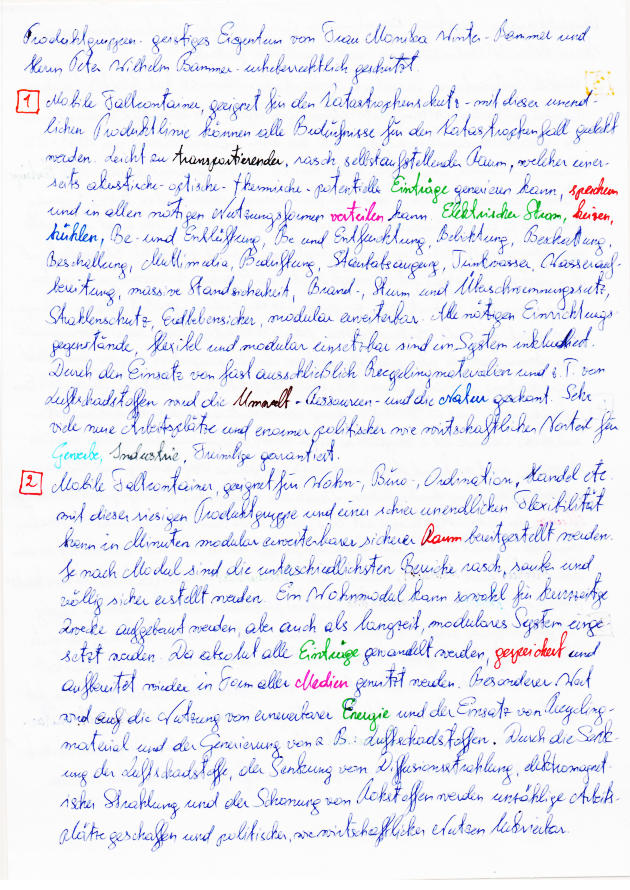 Produktgruppen - geistiges Eigentum von Frau Monika Winter-Bammer und
Herrn Peter Wilhelm Bammer - urheberrechtlich geschützt
1 Mobile Faltcontainer, geeignet für den Katastrophenschutz - mit dieser unend-
lichen Produktlinie können alle Bedürfnisse für den Katastrophenfall gedeckt
werden. Leicht zu transportierender, rasch, selbstaufstellender Raum, welcher einer-
seits akustische - optische - thermische - potentielle Einträge generieren kann, speichern
und in allen nötigen Nutzungsformen verteilen kann. Elektrischer Strom, heizen,
kühlen, Be- und Entlüftung, Be und Entfeuchtung, Belichtung, Beschattung,
Beschallung, Multimedia, Beduftung, Trinkwasser, Wasserauf-
bereitung, massive Standsicherheit, Brand-, Sturm und
Strahlenschutz, Erdbebensicher, modular erweiterbar. Alle nötigen Einrichtungs-
gegenstände, flexibel und modular einsetzbar sind im System inkludiert.
Durch den Einsatz von fast ausschließlich Recyclingmaterialien und z. T. von
Luftschadstoffen wird die Umwelt - Ressourcen - und die Natur geschont. Sehr
viele neue Arbeitsplätze und enormer politischer wie wirtschaftlicher Vorteil für
Gewerbe, Industrie, garantiert.
2 Mobile Faltcontainer, geeignet für Wohn-, Büro-, Ordination, Handel etc.
mit dieser riesigen Produktgruppe und einer schier unendlichen Flexibilität
kann in Minuten modular erweiterbarer sicherer Raum bereitgestellt werden.
Je nach Modul sind die unterschiedlichsten Bereiche rasch, sauber und
völlig sicher erstellt werden. Ein Wohnmodul kann sowohl für kurzzeitge
Zwecke aufgebaut werden, aber auch als langzeit, modulares System einge-
setzt werden. Da absolut alle Einträge gewandelt werden, gespeichert und
aufbereitet wieder in Form aller Medien genützt werden. Besonderer Wert
wird auf die Nutzung von erneuerbarer Energie und der Einsatz von Recycling-
material und der Generierung von z B.: Luftschadstoffen. Durch die Senk-
ung der Luftschadstoffe, der Senkung von Diffusionsstrahlung, elektromagnet-
ischer Strahlung und der Schonung von Rohstoffen werden unzählige Arbeits-
plätze geschaffen und politischer, wie wirtschaftlicher Nutzen